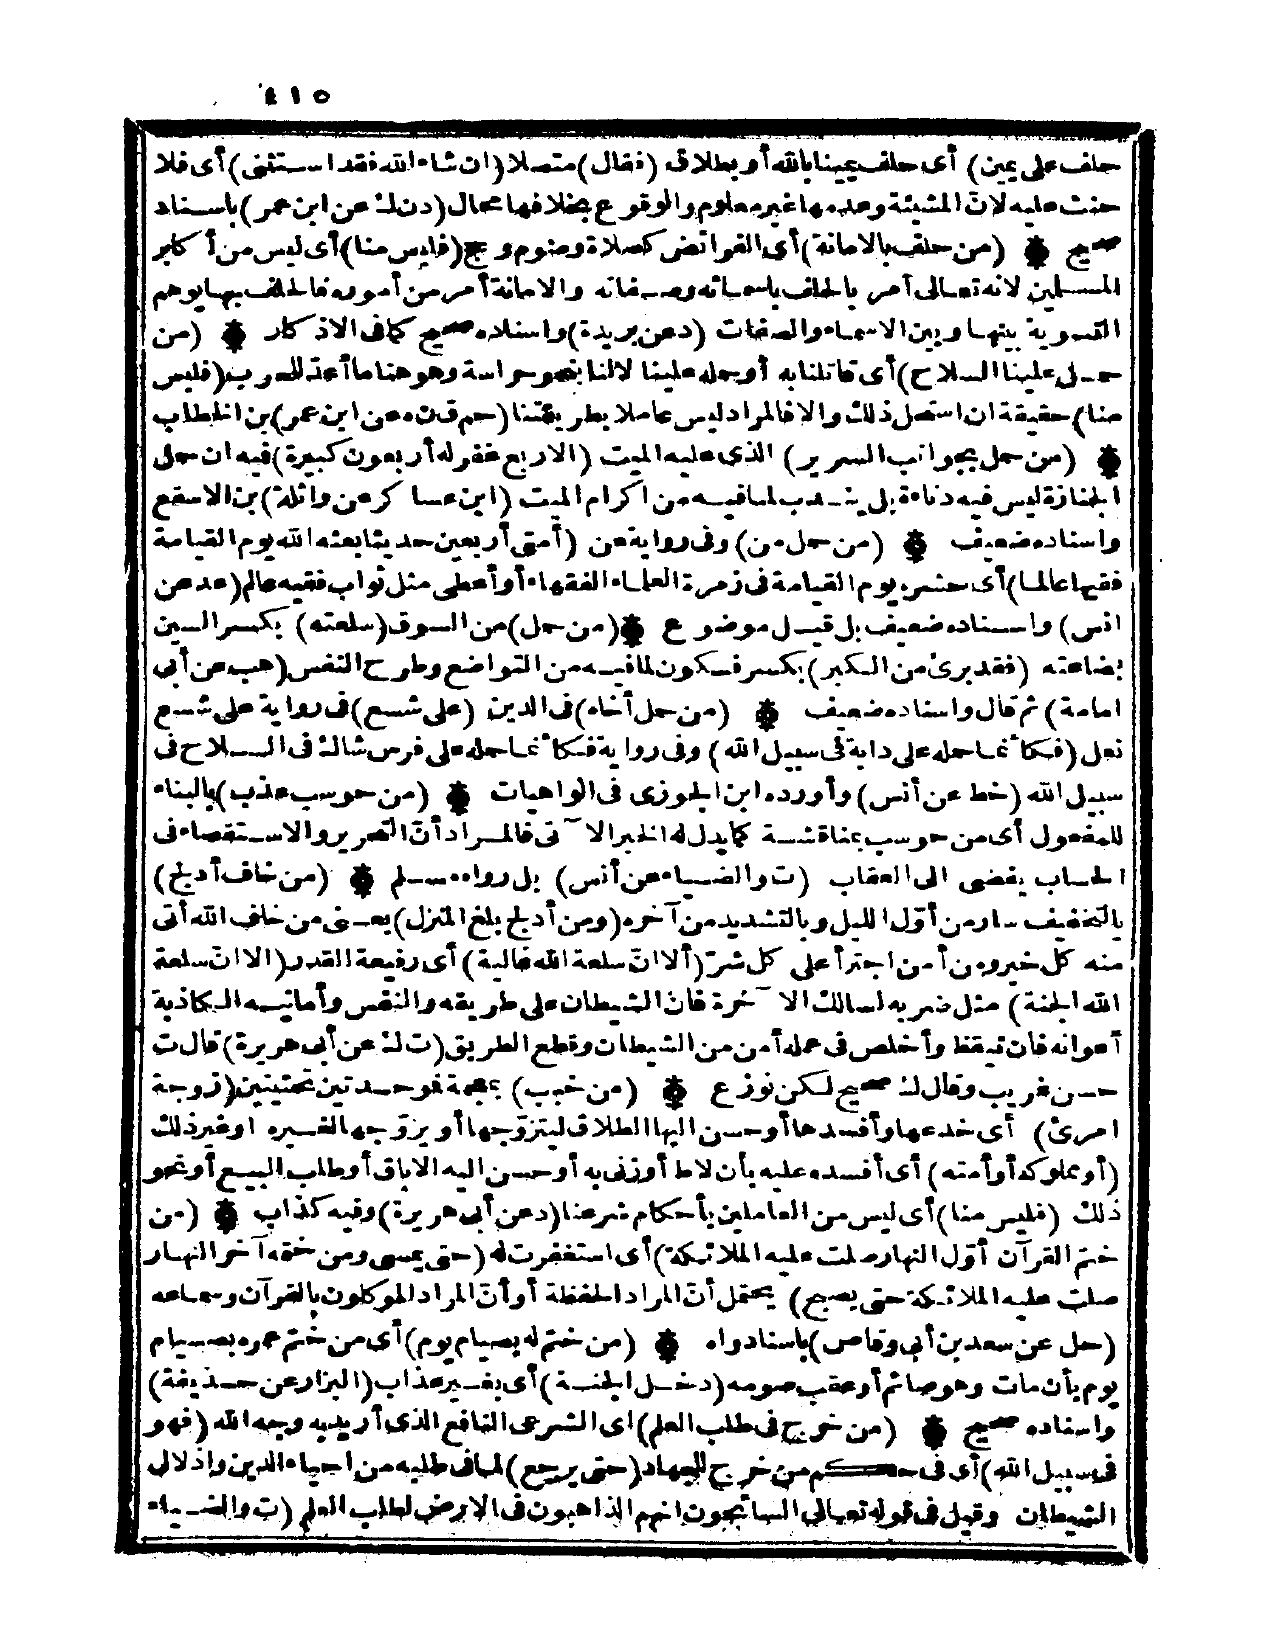 ٤١٥
حلف على يمين) أى حلف يمينا بالله أو بطلاق (فقال) متصلا (ان شاء الله فقد استثنى) أى فلا
حنث عليه لانّ المشيئة وعدمها غير معلوم والوقوع بخلافها محال (دن ك عن ابن عمر) باسناد
صحيح (من حلف بالامانة) أى الفرائض كصلاة وصوم وحج (فليس منا) أى ليس من أكابر
المسلمين لانه تعالى أمر بالحلف باسمائه وصفاته والامانة أمر من أموره فالحلف بها يوهم
التسوية بينها وبين الاسماء والصفات (د عن بريدة) واسناده صحيح كما فى الاذكار (من
حمل علينا السلاح) أى قاتلنا به أو حمله علينا لا لنا بنحو حراسة وهو هنا ما أعدّ للحرب (فليس
منا) حقيقة ان استحل ذلك والا فالمراد ليس عاملا بطريقتنا (حم ق ن ه عن ابن عمر) بن الخطاب
(من حمل بجوانب السرير) الذى عليه الميت (الاربع غفر له أربعون كبيرة) فيه ان حمل
الجنازة ليس فيه دناءة بل يندب لما فيه من اكرام الميت (ابن عساكر عن واثلة) بن الاسقع
واسناده ضعيف (من حمل من) وفى رواية عن (أمتى أربعين حديثا بعثه الله يوم القيامة
فقيها عالما) أى حشره يوم القيامة فى زمرة العلماء الفقهاء أو أعطى مثل ثواب فقيه عالم (عد عن
انس) واسناده ضعيف بل قيل موضوع (من حمل) من السوق (سلعته) بكسر السين
بضاعته (فقد برئ من الكبر) بكسر فسكون لما فيه من التواضع وطرح النفس (هب عن أبى
امامة) ثم قال واسناده ضعيف (من حمل أخاه) فى الدين (على شسع) فى رواية على شسع
نعل (فكأنما حمله على دابة فى سبيل الله) وفى رواية فكأنما حمله على فرس شاك فى السلاح فى
سبيل الله (خط عن أنس) وأورده ابن الجوزى فى الواهيات (من حوسب عذب) بالبناء
للمفعول أى من حوسب بمناقشة كما يدل له الخبر الآتى فالمراد أنّ التحرير والاستقصاء فى
الحساب يفضى الى العقاب (ت والضياء عن أنس) بل رواه مسلم (من خاف أدلج)
بالتخفيف سار من أوّل الليل وبالتشديد من آخره (ومن أدلج بلغ المنزل) يعنى من خاف الله أتى
منه كل خير ومن أمن اجترأ على كل شرّ (ألا انّ سلعة الله غالية) أى رفيعة القدر (الا انّ سلعة
الله الجنة) مثل ضربه لسالك الآخرة فانّ الشيطان على طريقه والنفس وأمانيه الكاذبة
أعوانه فان تيقظ وأخلص فى عمله أمن من الشيطان وقطع الطريق (ت ك عن أبى هريرة) قال ت
حسن غريب وقال ك صحيح لكن نوزع (من خبب) بمعجمة فموحدتين تحتيتين (زوجة
امرئ) أى خدعها وأفسدها أو حسن اليها الطلاق ليتزوّجها أو يزوّجها لغيره اوغير ذلك
(أو مملوكه أو أمته) أى أفسده عليه بأن لاط أو زنى به أو حسن اليه الاباق أو طلب البيع أو نحو
ذلك (فليس منا) أى ليس من العاملين بأحكام شرعنا (د عن أبى هريرة) وفيه كذاب (من
ختم القرآن أوّل النهار صلت عليه الملائكة) أى استغفرت له (حتى يمسى ومن ختمه آخر النهار
صلت عليه الملائكة حتى يصبح) يحتمل أنّ المراد الحفظة أو أنّ المراد الموكلون بالقرآن وسماعه
(حل عن سعد بن أبى وقاص) باسناد واه (من ختم له بصيام يوم) أى من ختم عمره بصيام
يوم بأن مات وهو صائم أو عقب صومه (دخل الجنة) أى بغير عذاب (البزار عن حذيفة)
واسناده صحيح (من خرج فى طلب العلم) اى الشرعى النافع الذى أريد به وجه الله (فهو
فى سبيل الله) أى فى حكم من خرج للجهاد (حتى يرجع) لما فى طلبه من احياء الدين واذلال
الشيطان وقيل فى قوله تعالى السائحون انهم الذاهبون فى الارض لطلب العلم (ت والضياء